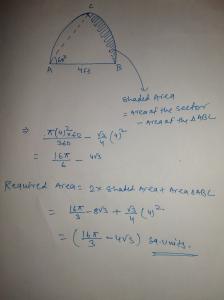 C
60°
A
4ft
B
Shaded Area
= Area of the sector
- Area of the ΔABC
⇒ π(4)²×60/360 - √3/4 (4)²
= 16π/6 - 4√3
Required Area = 2× Shaded Area + Area ΔABC
= 16π/3 - 8√3 + √3/4 (4)²
= (16π/3 - 4√3) sq.units.